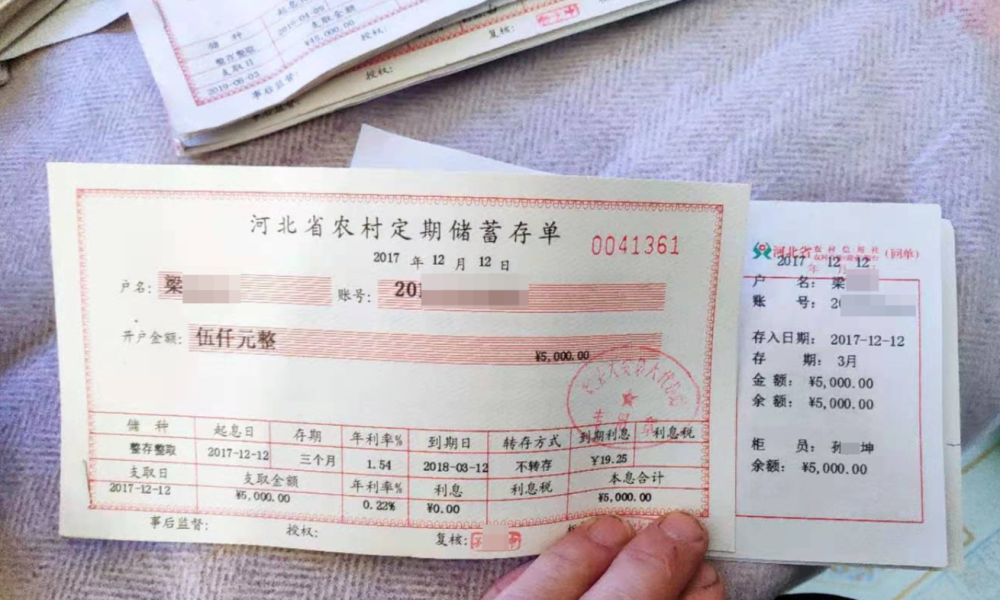 起息
2018-04-03
支取金额
¥45,000.00
储 种
整存整取
支取日
2019-08-03
事后监督:
授权:
复核:
河北省农村定期储蓄存单
0041361
2017 年 12 月 12 日
户名: 梁
账号: 20
开户金额: 伍仟元整
¥5,000.00
储 种 起息日 存期 年利率% 到期日 转存方式 到期利息 利息税
整存整取 2017-12-12 三个月 1.54 2018-03-12 不转存 ¥19.25
支取日 支取金额 年利率% 利息 利息税 本息合计
2017-12-12 ¥5,000.00 0.22% ¥0.00 ¥5,000.00
事后监督: 授权: 复核:
河北省农村信用社 (回单)
2017 12 12
年
户 名: 梁
账 号: 20
存入日期: 2017-12-12
存 期: 3月
金 额: ¥5,000.00
余 额: ¥5,000.00
柜 员: 孙 坤
余额: ¥5,000.00